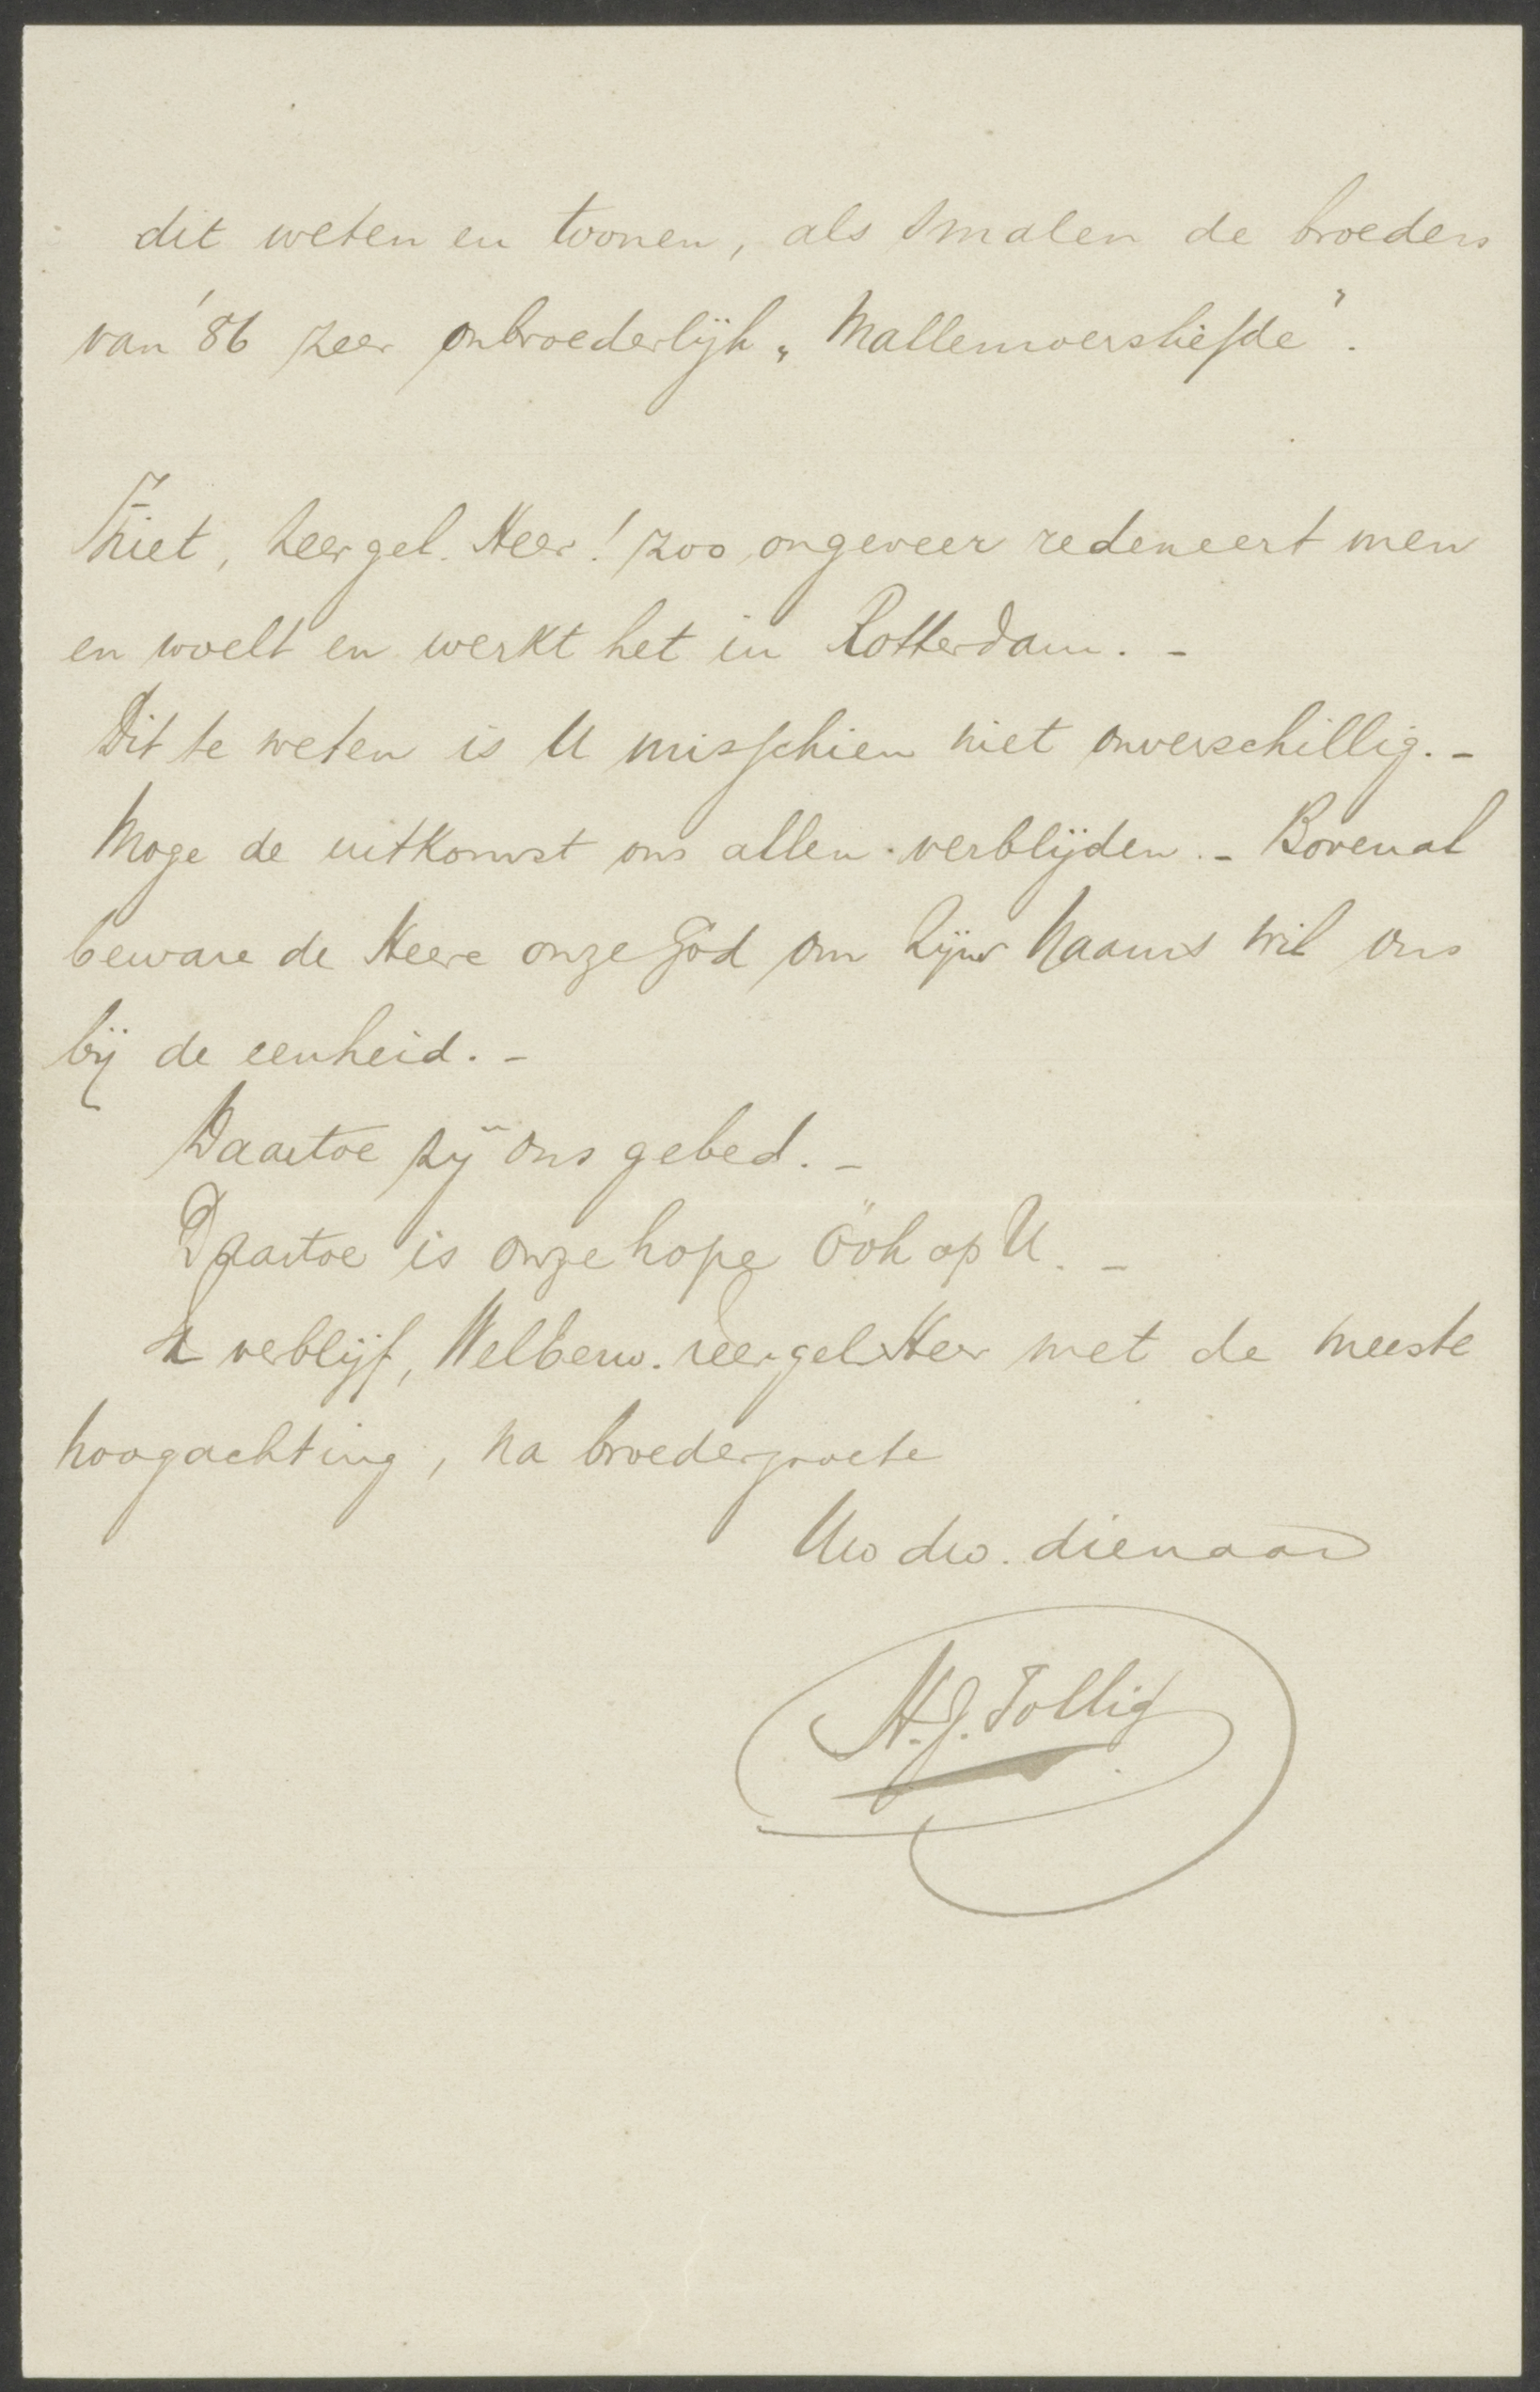 dit weten en toonen, als smalen de broeders
van '86 zeer onbroederlijk „Mallemoersliefde".
Ziet, Zeergel. Heer! zoo ongeveer redeneert men
en woelt en werkt het in Rotterdam. -
Dit te weten is U misschien niet onverschillig. -
Moge de uitkomst ons allen verblijden. - Bovenal
beware de Heere onze God om Zijns Naams wil ons
bij de eenheid. -
Daartoe zij ons gebed. -
Daartoe is onze hope óók op U. -
verblijf, Welberw. zeergel. Heer met de meeste
hoogachting, na broedergroete
Uw dw. dienaar
H.J. Tollig